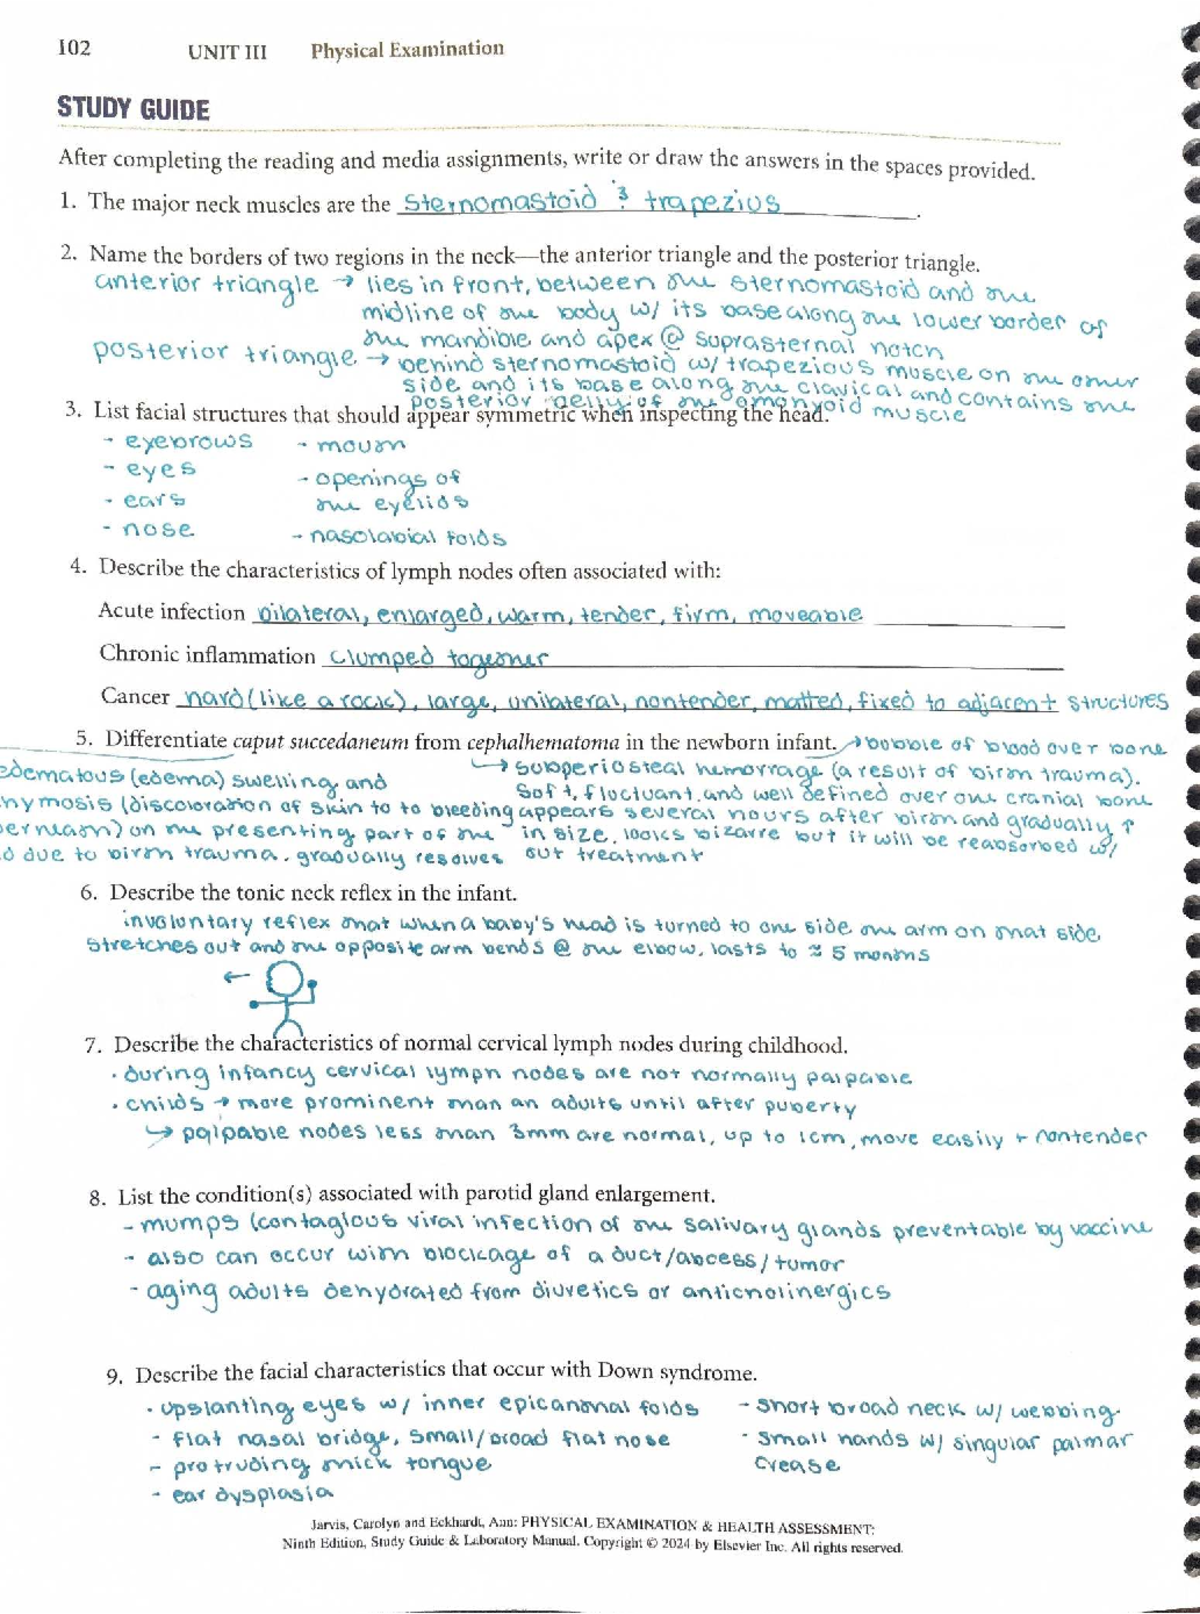 102 UNIT III Physical Examination
STUDY GUIDE
After completing the reading and media assignments, write or draw the answers in the spaces provided.
1. The major neck muscles are the sternomastoid & trapezius.
2. Name the borders of two regions in the neck—the anterior triangle and the posterior triangle.
anterior triangle → lies in front, between the sternomastoid and the
midline of the body w/ its base along the lower border of
the mandible and apex @ suprasternal notch
posterior triangle → behind sternomastoid w/ trapezious muscle on the other
side and its base along the clavical and contains the
posterior belly of the omohyoid muscle
3. List facial structures that should appear symmetric when inspecting the head.
- eyebrows - mouth
- eyes - openings of
- ears the eyelids
- nose - nasolabial folds
4. Describe the characteristics of lymph nodes often associated with:
Acute infection bilateral, enlarged, warm, tender, firm, moveable
Chronic inflammation clumped together
Cancer hard (like a rock), large, unilateral, nontender, matted, fixed to adjacent structures
5. Differentiate caput succedaneum from cephalhematoma in the newborn infant. → bobble of blood over bone
edematous (edema) swelling and → subperiosteal hemorrage (a result of birth trauma).
soft, fluctuant, and well defined over one cranial bone
hymosis (discoloration of skin to to bleeding appears several hours after birth and gradually ↑
derneath) on the presenting part of the in size. looks bizarre but it will be reabsorbed w/
d due to birth trauma. gradually resolves out treatment
6. Describe the tonic neck reflex in the infant.
involuntary reflex that when a baby's head is turned to one side the arm on that side
stretches out and the opposite arm bends @ the elbow, lasts to ≈ 5 months
←
7. Describe the characteristics of normal cervical lymph nodes during childhood.
• during infancy cervical lymph nodes are not normally palpable
• childs → more prominent than an adults until after puberty
↳ palpable nodes less than 3mm are normal, up to 1cm, move easily + nontender
8. List the condition(s) associated with parotid gland enlargement.
- mumps (contagious viral infection of the salivary glands preventable by vaccine
- also can occur with blockage of a duct/abcess/tumor
- aging adults dehydrated from diuretics or anticholinergics
9. Describe the facial characteristics that occur with Down syndrome.
• upslanting eyes w/ inner epicanthal folds - short broad neck w/ webbing
- flat nasal bridge, small/broad flat nose - small hands w/ singular palmar
- protruding thick tongue crease
- ear dysplasia
Jarvis, Carolyn and Eckhardt, Ann: PHYSICAL EXAMINATION & HEALTH ASSESSMENT:
Ninth Edition, Study Guide & Laboratory Manual. Copyright © 2024 by Elsevier Inc. All rights reserved.